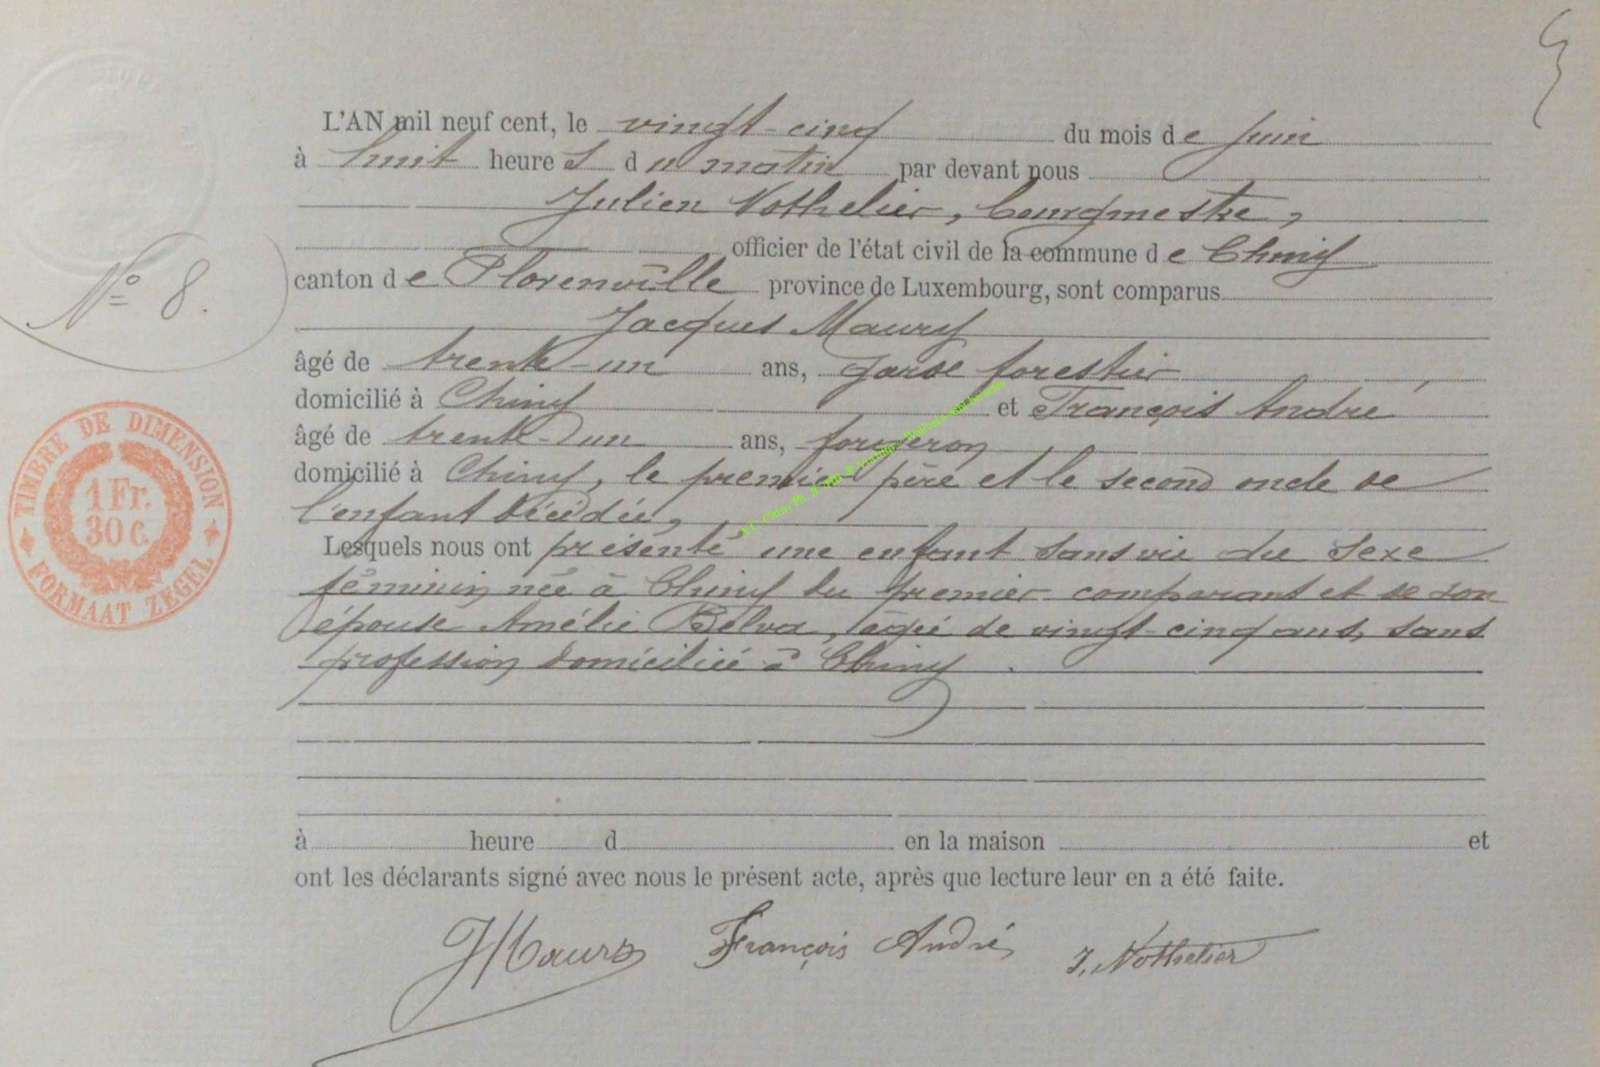 L'AN mil neuf cent, le vingt-cinq du mois de Juin
à huit heures du matin par devant nous
Julien Nothelier, bourgmestre,
officier de l'état civil de la commune de Chiny
canton de Florenville province de Luxembourg, sont comparus
N° 8.
Jacques Maury
âgé de trente-un ans, garde forestier
domicilié à Chiny et François André
âgé de trente-un ans, forgeron
domicilié à Chiny, le premier père et le second oncle de
l'enfant décédée,
Lesquels nous ont présenté une enfant sans vie du sexe
féminin née à Chiny du premier comparant et de son
épouse Amélie Belva, âgée de vingt-cinq ans, sans
profession domiciliée à Chiny.
à heure d en la maison et
ont les déclarants signé avec nous le présent acte, après que lecture leur en a été faite.
JMaury François André J. Nothelier
TIMBRE DE DIMENSION
1 Fr.
30 C.
FORMAAT ZEGEL